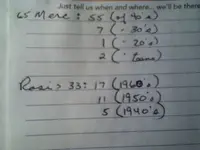 Just tell us when and where... we'll be there
65 Merc : 55 (of 40's)
7 ( " 30's)
1 ( " 20's)
2 ( " teens)
Rosi > 33: 17 (1960's)
11 (1950's)
5 (1940's)